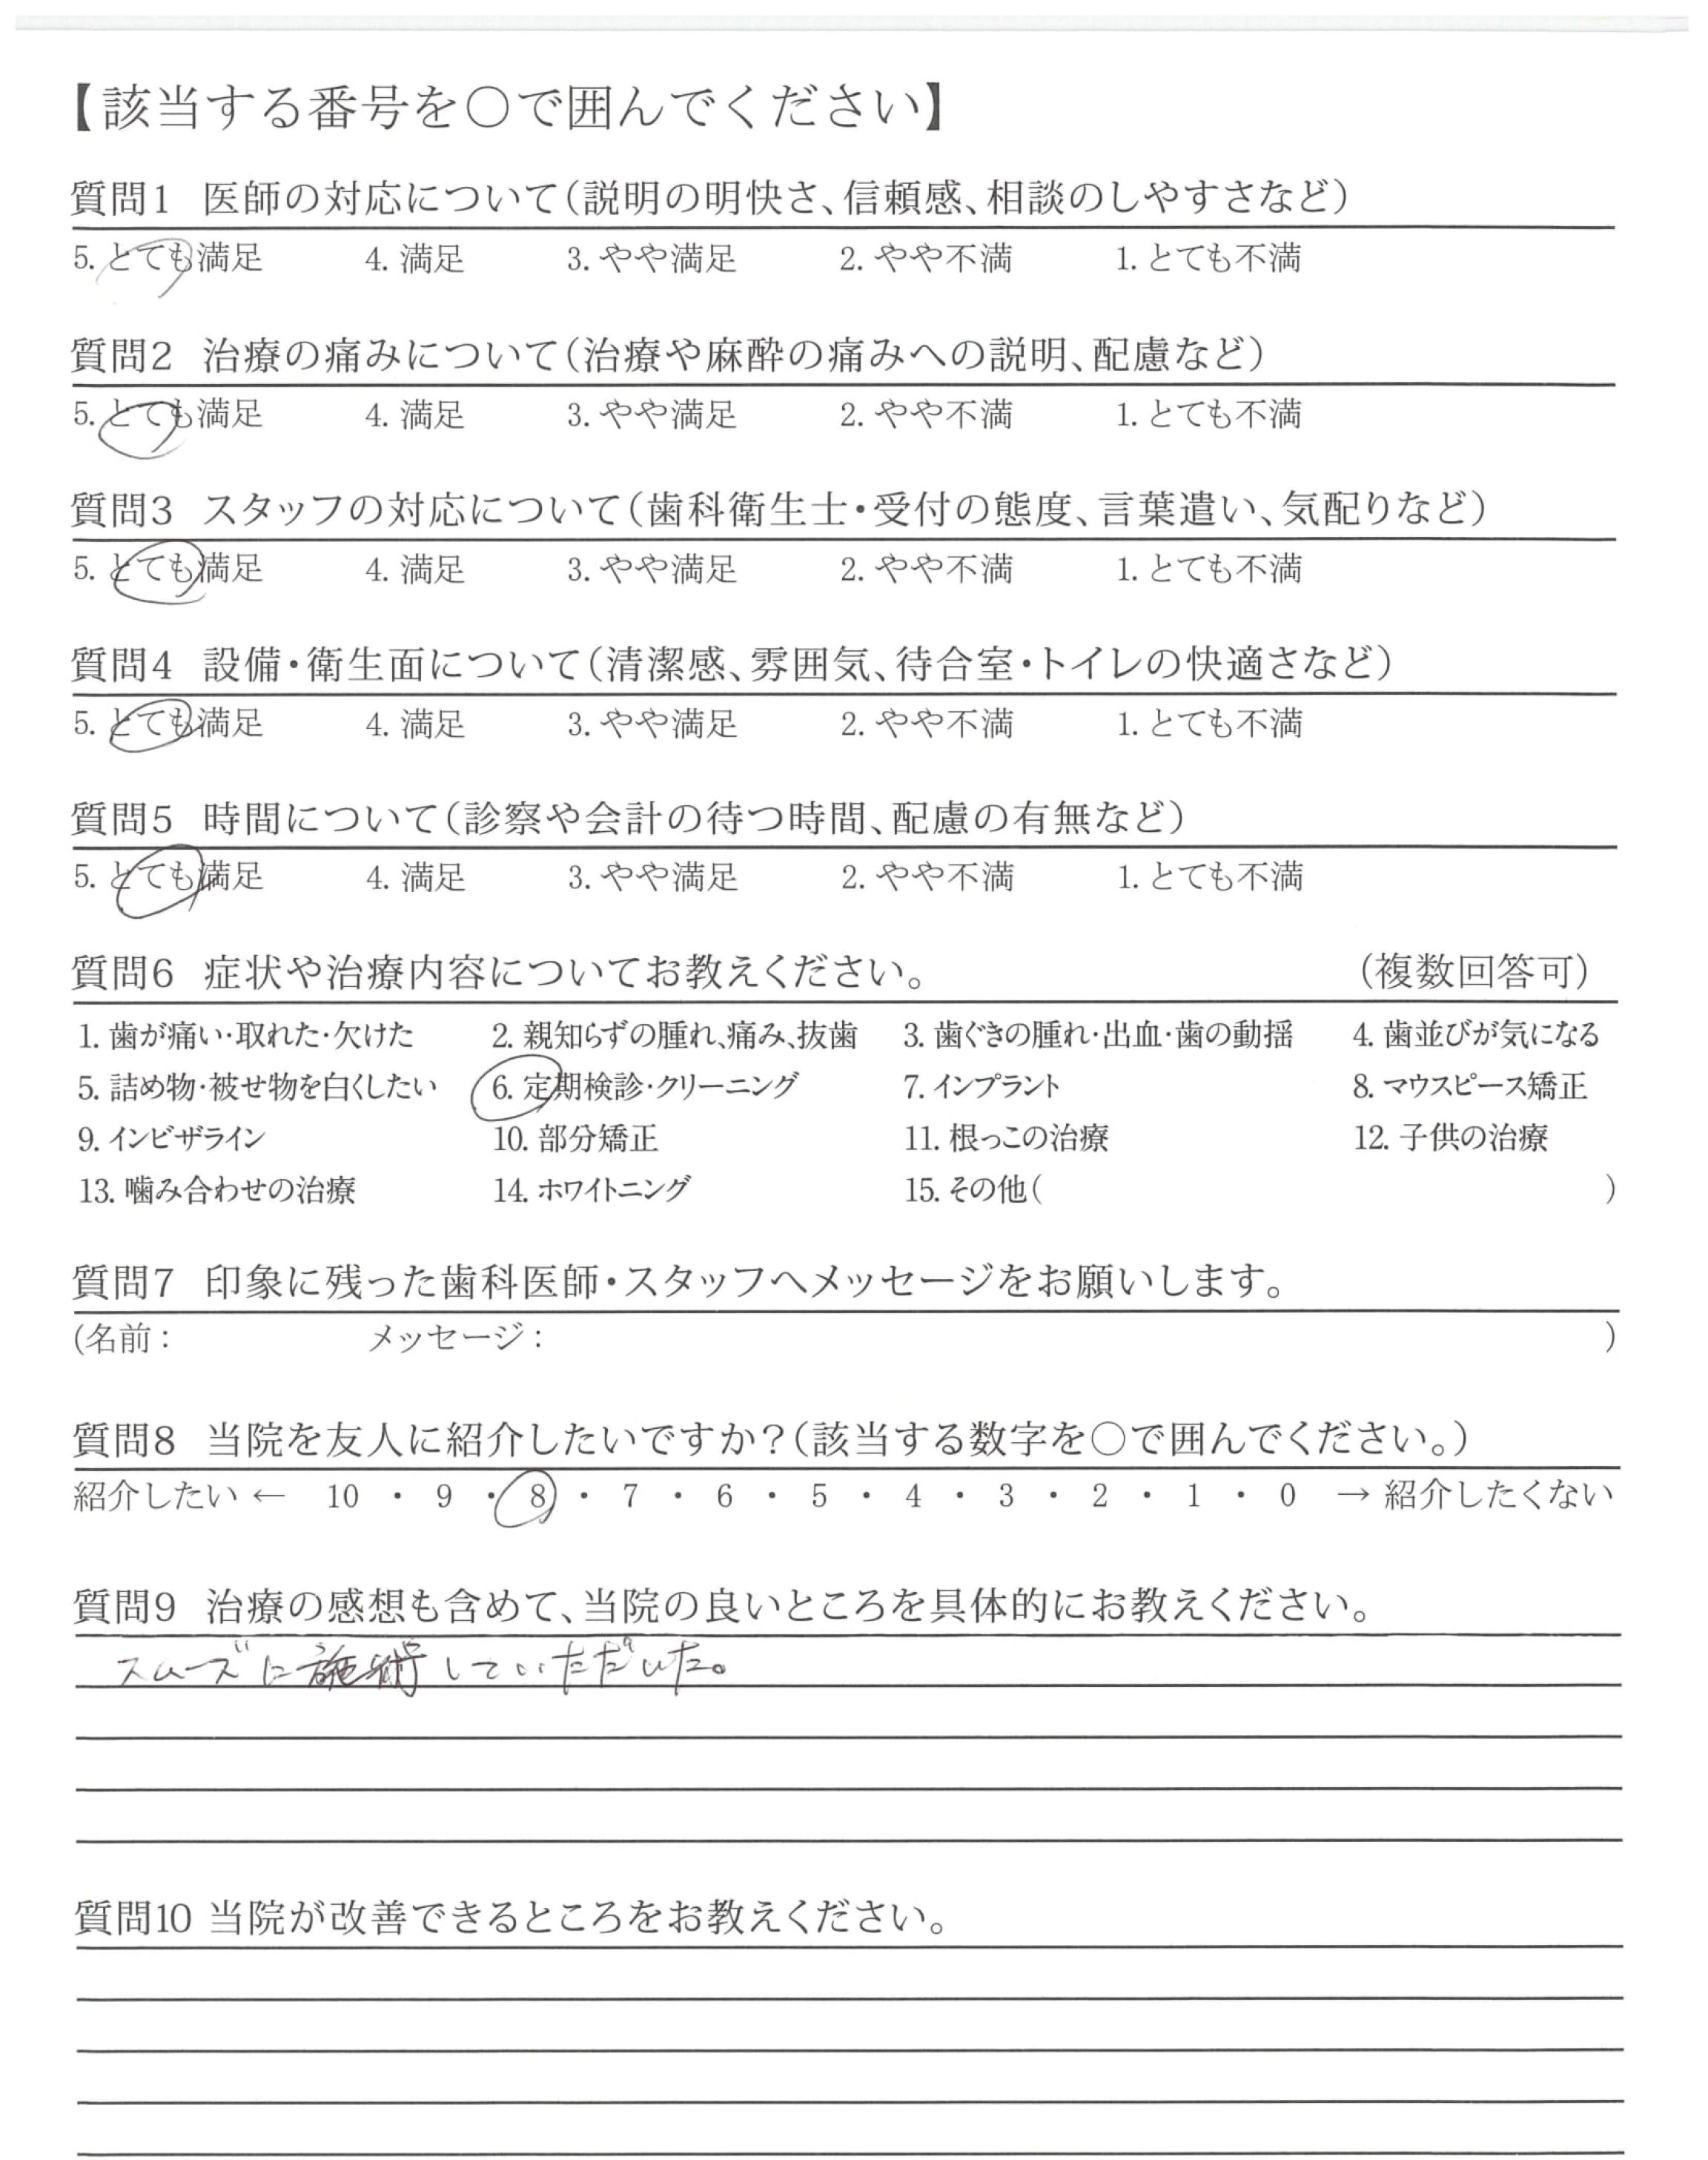 【該当する番号を○で囲んでください】
質問1 医師の対応について(説明の明快さ、信頼感、相談のしやすさなど)
5. とても満足 4. 満足 3. やや満足 2. やや不満 1. とても不満
質問2 治療の痛みについて(治療や麻酔の痛みへの説明、配慮など)
5. とても満足 4. 満足 3. やや満足 2. やや不満 1. とても不満
質問3 スタッフの対応について(歯科衛生士・受付の態度、言葉遣い、気配りなど)
5. とても満足 4. 満足 3. やや満足 2. やや不満 1. とても不満
質問4 設備・衛生面について(清潔感、雰囲気、待合室・トイレの快適さなど)
5. とても満足 4. 満足 3. やや満足 2. やや不満 1. とても不満
質問5 時間について(診察や会計の待つ時間、配慮の有無など)
5. とても満足 4. 満足 3. やや満足 2. やや不満 1. とても不満
質問6 症状や治療内容についてお教えください。 (複数回答可)
1. 歯が痛い・取れた・欠けた 2. 親知らずの腫れ、痛み、抜歯 3. 歯ぐきの腫れ・出血・歯の動揺 4. 歯並びが気になる
5. 詰め物・被せ物を白くしたい 6. 定期検診・クリーニング 7. インプラント 8. マウスピース矯正
9. インビザライン 10. 部分矯正 11. 根っこの治療 12. 子供の治療
13. 噛み合わせの治療 14. ホワイトニング 15. その他( )
質問7 印象に残った歯科医師・スタッフへメッセージをお願いします。
(名前： メッセージ： )
質問8 当院を友人に紹介したいですか？(該当する数字を○で囲んでください。)
紹介したい ← 10 ・ 9 ・ 8 ・ 7 ・ 6 ・ 5 ・ 4 ・ 3 ・ 2 ・ 1 ・ 0 → 紹介したくない
質問9 治療の感想も含めて、当院の良いところを具体的にお教えください。
スムーズに施術していただいた。
質問10 当院が改善できるところをお教えください。